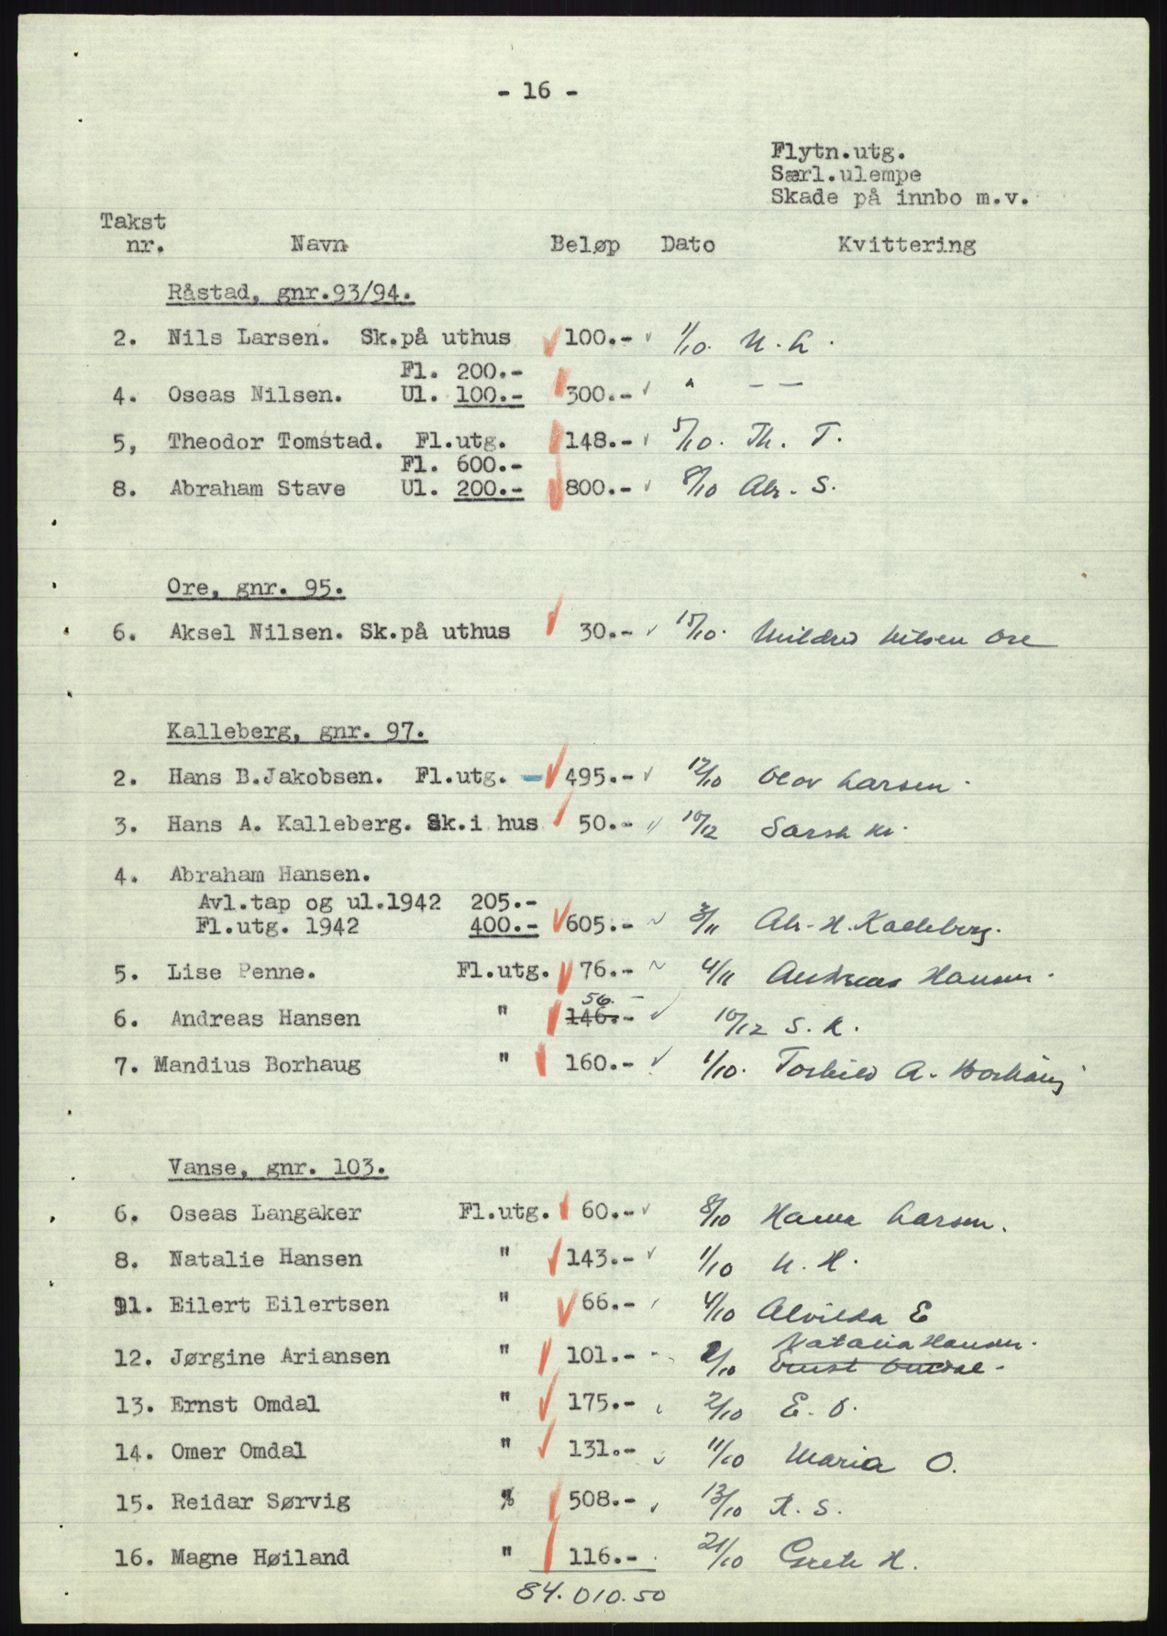 - 16 -
Flytn.utg.
Særl.ulempe
Skade på innbo m.v.
Takst
nr. Navn Beløp Dato Kvittering
Råstad, gnr.93/94.
2. Nils Larsen. Sk.på uthus 100.- 1/10. N. L.
Fl. 200.-
4. Oseas Nilsen. Ul. 100.- 300.- " — —
5, Theodor Tomstad. Fl.utg. 148.- 5/10. Th. T.
Fl. 600.-
8. Abraham Stave Ul. 200.- 800.- 8/10 Abr. S.
Ore, gnr. 95.
6. Aksel Nilsen. Sk.på uthus 30.- 15/10. Mildred Nilsen Ore
Kalleberg, gnr. 97.
2. Hans B.Jakobsen. Fl.utg. - 495.- 12/10 Olav Larsen.
3. Hans A. Kalleberg. Sk.i hus 50.- 10/12 Sarah K.
4. Abraham Hansen.
Avl.tap og ul.1942 205.-
Fl.utg. 1942 400.- 605.- 3/11 Abr. H. Kalleberg.
5. Lise Penne. Fl.utg. 76.- 4/11 Andreas Hansen.
56.-
6. Andreas Hansen " 146.- 10/12 S. K.
7. Mandius Borhaug " 160.- 1/10. Torhild A. Borhaug
Vanse, gnr. 103.
6. Oseas Langaker Fl.utg. 60.- 8/10 Hanna Larsen.
8. Natalie Hansen " 143.- 1/10 N. H.
11. Eilert Eilertsen " 66.- 4/10 Alvilda E
Natalia Hansen.
12. Jørgine Ariansen " 101.- 2/10 Ernst Omdal.
13. Ernst Omdal " 175.- 2/10 E. O.
14. Omer Omdal " 131.- 11/10 Maria O.
15. Reidar Sørvig " 508.- 13/10 R. S.
16. Magne Høiland " 116.- 21/10 Grete H.
84.010.50